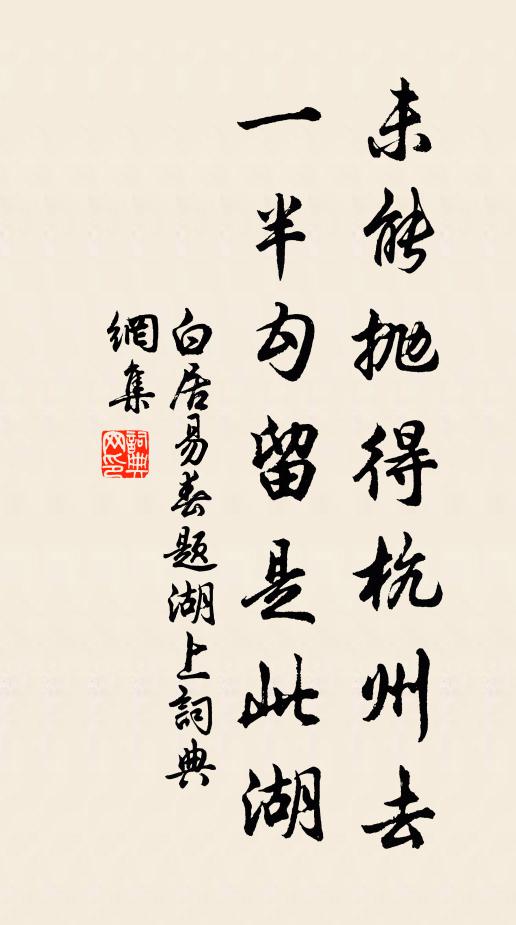 未能抛得杭州去
一半勾留是此湖
白居易春题湖上詞典
網集
詞典
网印